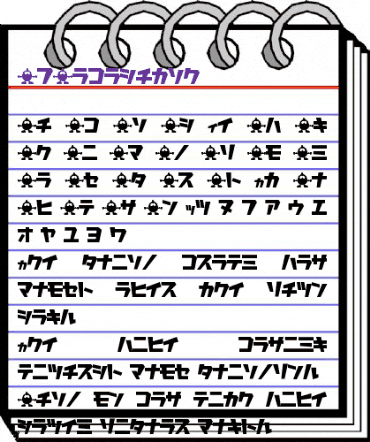 フラコラシチカソク
チ コ ソ シ ィイ ハ キ
ク ニ マ ノ リ モ ミ
ラ セ タ ス ト ヵカ ナ
ヒ テ サ ン ッツ ヌ フ ア ウ エ
オ ヤ ユ ヨ ワ
ヵクイ タナニソノ コスラテミ ハラサ
マナモセト ラヒイス カクイ リチツン
シラキル
ヵクイ ハニヒイ コラサニミキ
テニツチスシト マナモセ タナニソノリンル
チソノ モン コラサ テニカク ハニヒイ
シラツイミ リニタナラス マナキトル